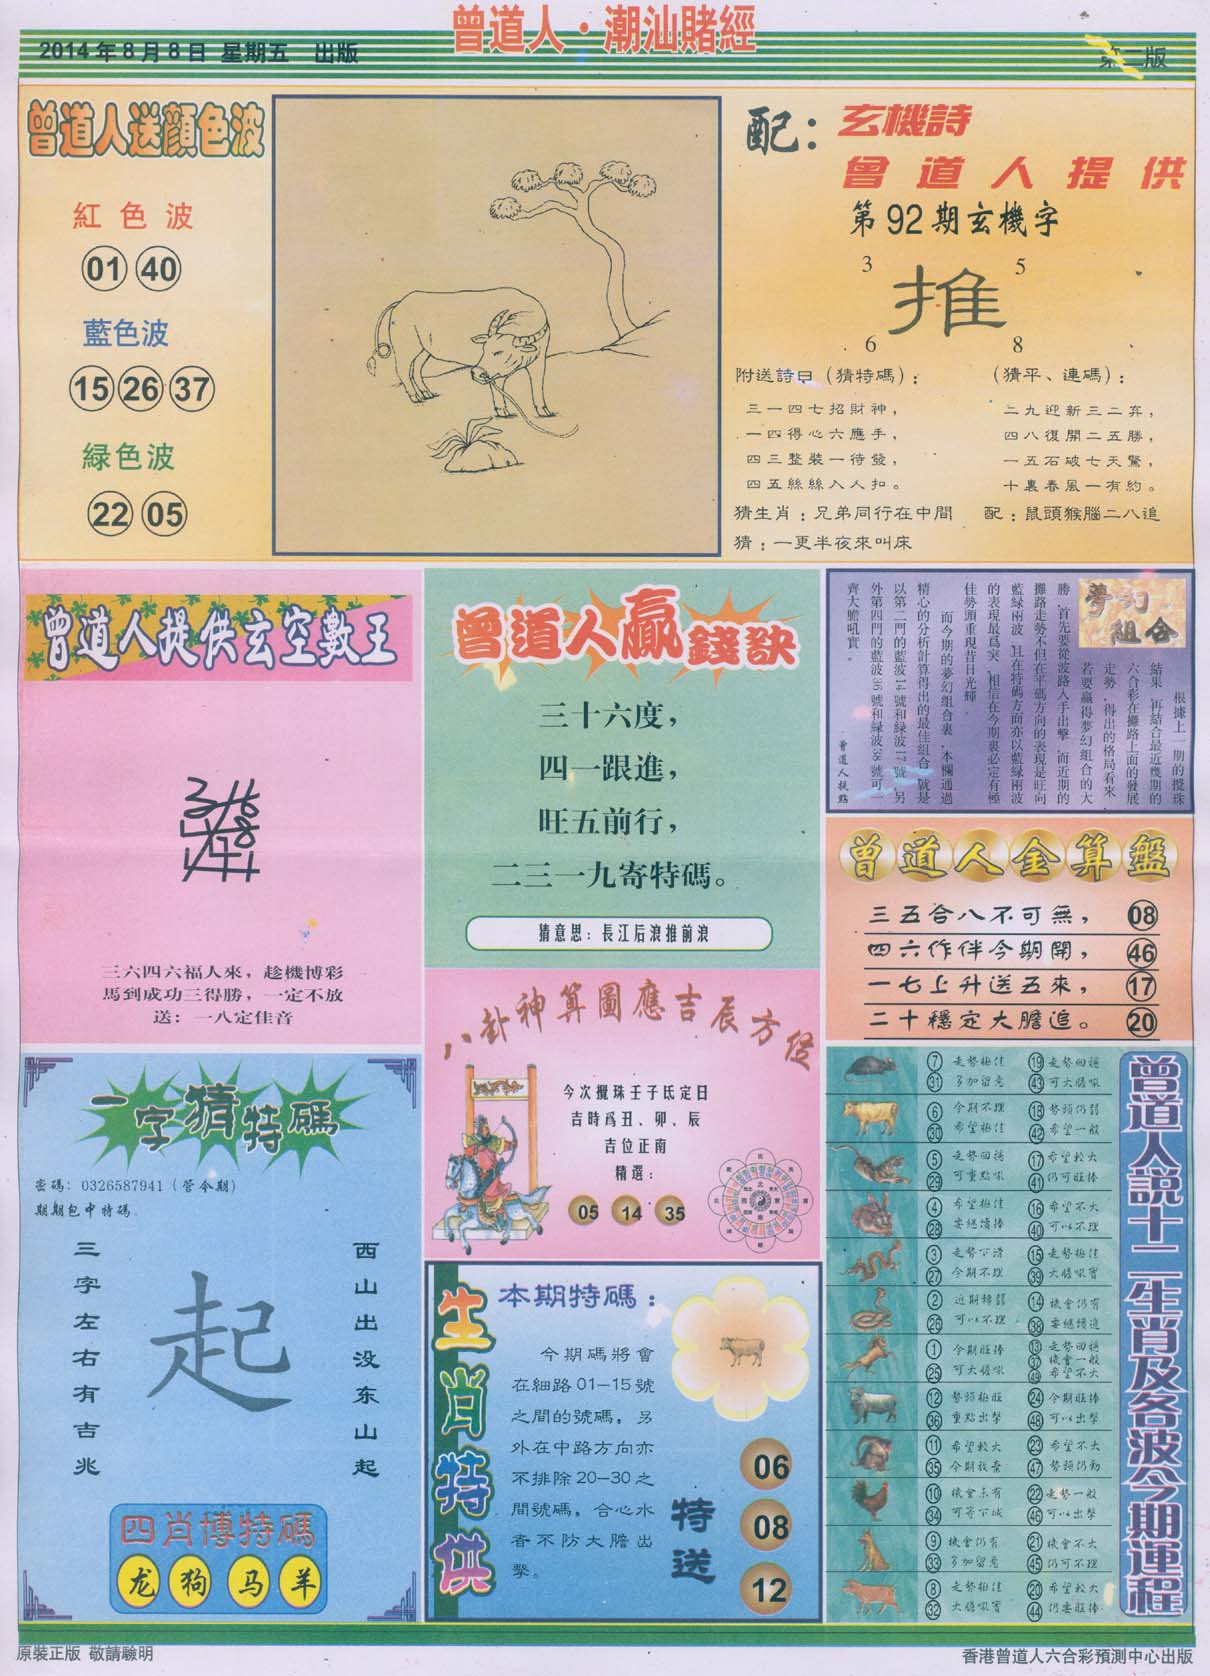 曾道人·潮汕賭經
2014年8月8日 星期五 出版
第二版
曾道人送顏色波
紅色波
01 40
藍色波
15 26 37
緑色波
22 05
配：玄機詩
曾道人提供
第92期玄機字
3 5
推
6 8
附送詩曰（猜特碼）：
三一四七招財神，
一四得心六應手，
四三整裝一待發，
四五絲絲入人扣。
（猜平、連碼）：
二九迎新三二弃，
四八復開二五勝，
一五石破七天驚，
十裏春風一有約。
猜生肖：兄弟同行在中間 配：鼠頭猴腦二八追
猜：一更半夜來叫床
曾道人提供玄空數王
三六四六福人來，趁機博彩
馬到成功三得勝，一定不放
送：一八定佳音
曾道人贏錢訣
三十六度，
四一跟進，
旺五前行，
二三一九寄特碼。
猜意思：長江后浪推前浪
夢幻組合
根據上一期的攪珠
結果，再結合最近幾期的
六合彩在攤路上面的發展
走勢，得出的格局看來，
若要贏得夢幻組合的大
勝，首先要從波路入手出擊，而近期的
攤路走勢不但在平碼方向的表現是旺向
藍緑兩波，且在特碼方面亦以藍緑兩波
的表現最爲突，相信在今期裏必定有極
佳勢頭重現昔日光輝。
而今期的夢幻組合裏，本欄通過
精心的分析計算得出的最佳組合號是
以第二門的藍波14號和緑波17號，另
外第四門的藍波36號和緑波38號可一
齊大膽吼實。
曾道人找點
曾道人金算盤
三五合八不可無， 08
四六作伴今期開， 46
一七上升送五來， 17
二十穩定大膽追。 20
一字猜特碼
密碼：0326587941（管令期）
期期包中特碼
三字左右有吉兆
起
西山出没东山起
四肖博特碼
龙 狗 马 羊
八卦神算圖應吉辰方位
今次攪珠壬子氐定日
吉時爲丑、卯、辰
吉位正南
精選：
05 14 35
生肖特供
本期特碼：
今期碼將會
在細路01－15號
之間的號碼，另
外在中路方向亦
不排除20－30之
間號碼，合心水
者不防大膽出
擊。
特送
06
08
12
曾道人說十二生肖及各波今期運程
7 走勢極佳 19 走勢回穩
31 多加留意 43 可大膽吼
6 今期不理 18 勢頭仍弱
30 希望極佳 42 希望一般
5 走勢回穩 17 希望較大
29 可重點吼 41 仍可旺捧
4 希望極佳 16 希望不大
28 要繼續捧 40 可以不理
3 走勢下滑 15 走勢極佳
27 今期不理 39 大膽吼實
2 近期轉弱 14 機會仍有
26 可以不理 38 要繼續追
1 今期旺捧 13 走勢回穩
37 機會一般
25 可大膽吼 49 希望不大
12 勢頭極旺 24 今期旺捧
36 重點出擊 48 可以出擊
11 希望較大 23 希望不大
35 今期找舂 47 勢頭仍勁
10 機會未有 22 走勢一般
34 可寄下城 46 可以出擊
9 機會仍有 21 機會不大
33 多加留意 45 仍可不理
8 走勢極佳 20 希望較大
32 大膽吼實 44 仍要旺捧
原裝正版 敬請驗明
香港曾道人六合彩預測中心出版